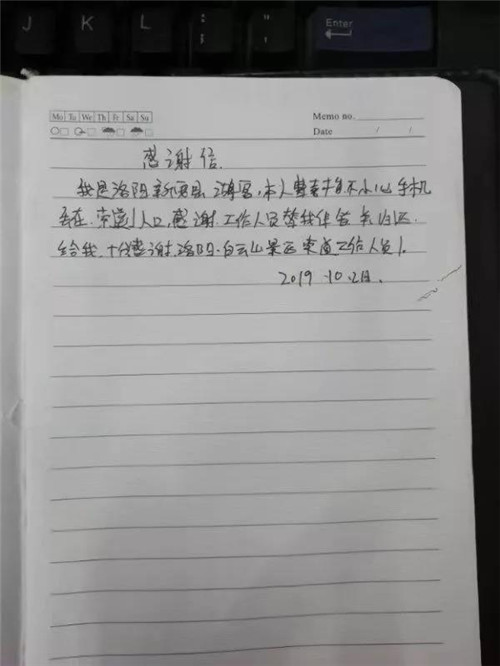 J K L : ; " ' Enter
Mo Tu We Th Fr Sa Su
Memo no.
Date / /
感谢信
我是洛阳新安县 游客,本人 不小心手机
丢在 索道入口,感谢 工作人员帮我保管 归还
给我,十分感谢 洛阳 白云山景区 索道工作人员!
2019 10.2日.